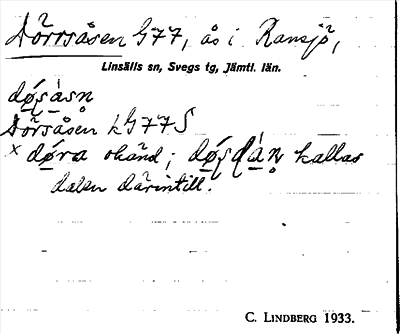 Dörrsåsen G77, ås i Ransjö,
Linsälls sn, Svegs tg, Jämtl. län.
dø̱ʂàsn̥
Dörsåsen LG77S
× dø̱ra okänd; dø̱ʂɖa̱n̥ kallas
dalen därintill.
C. LINDBERG 1933.